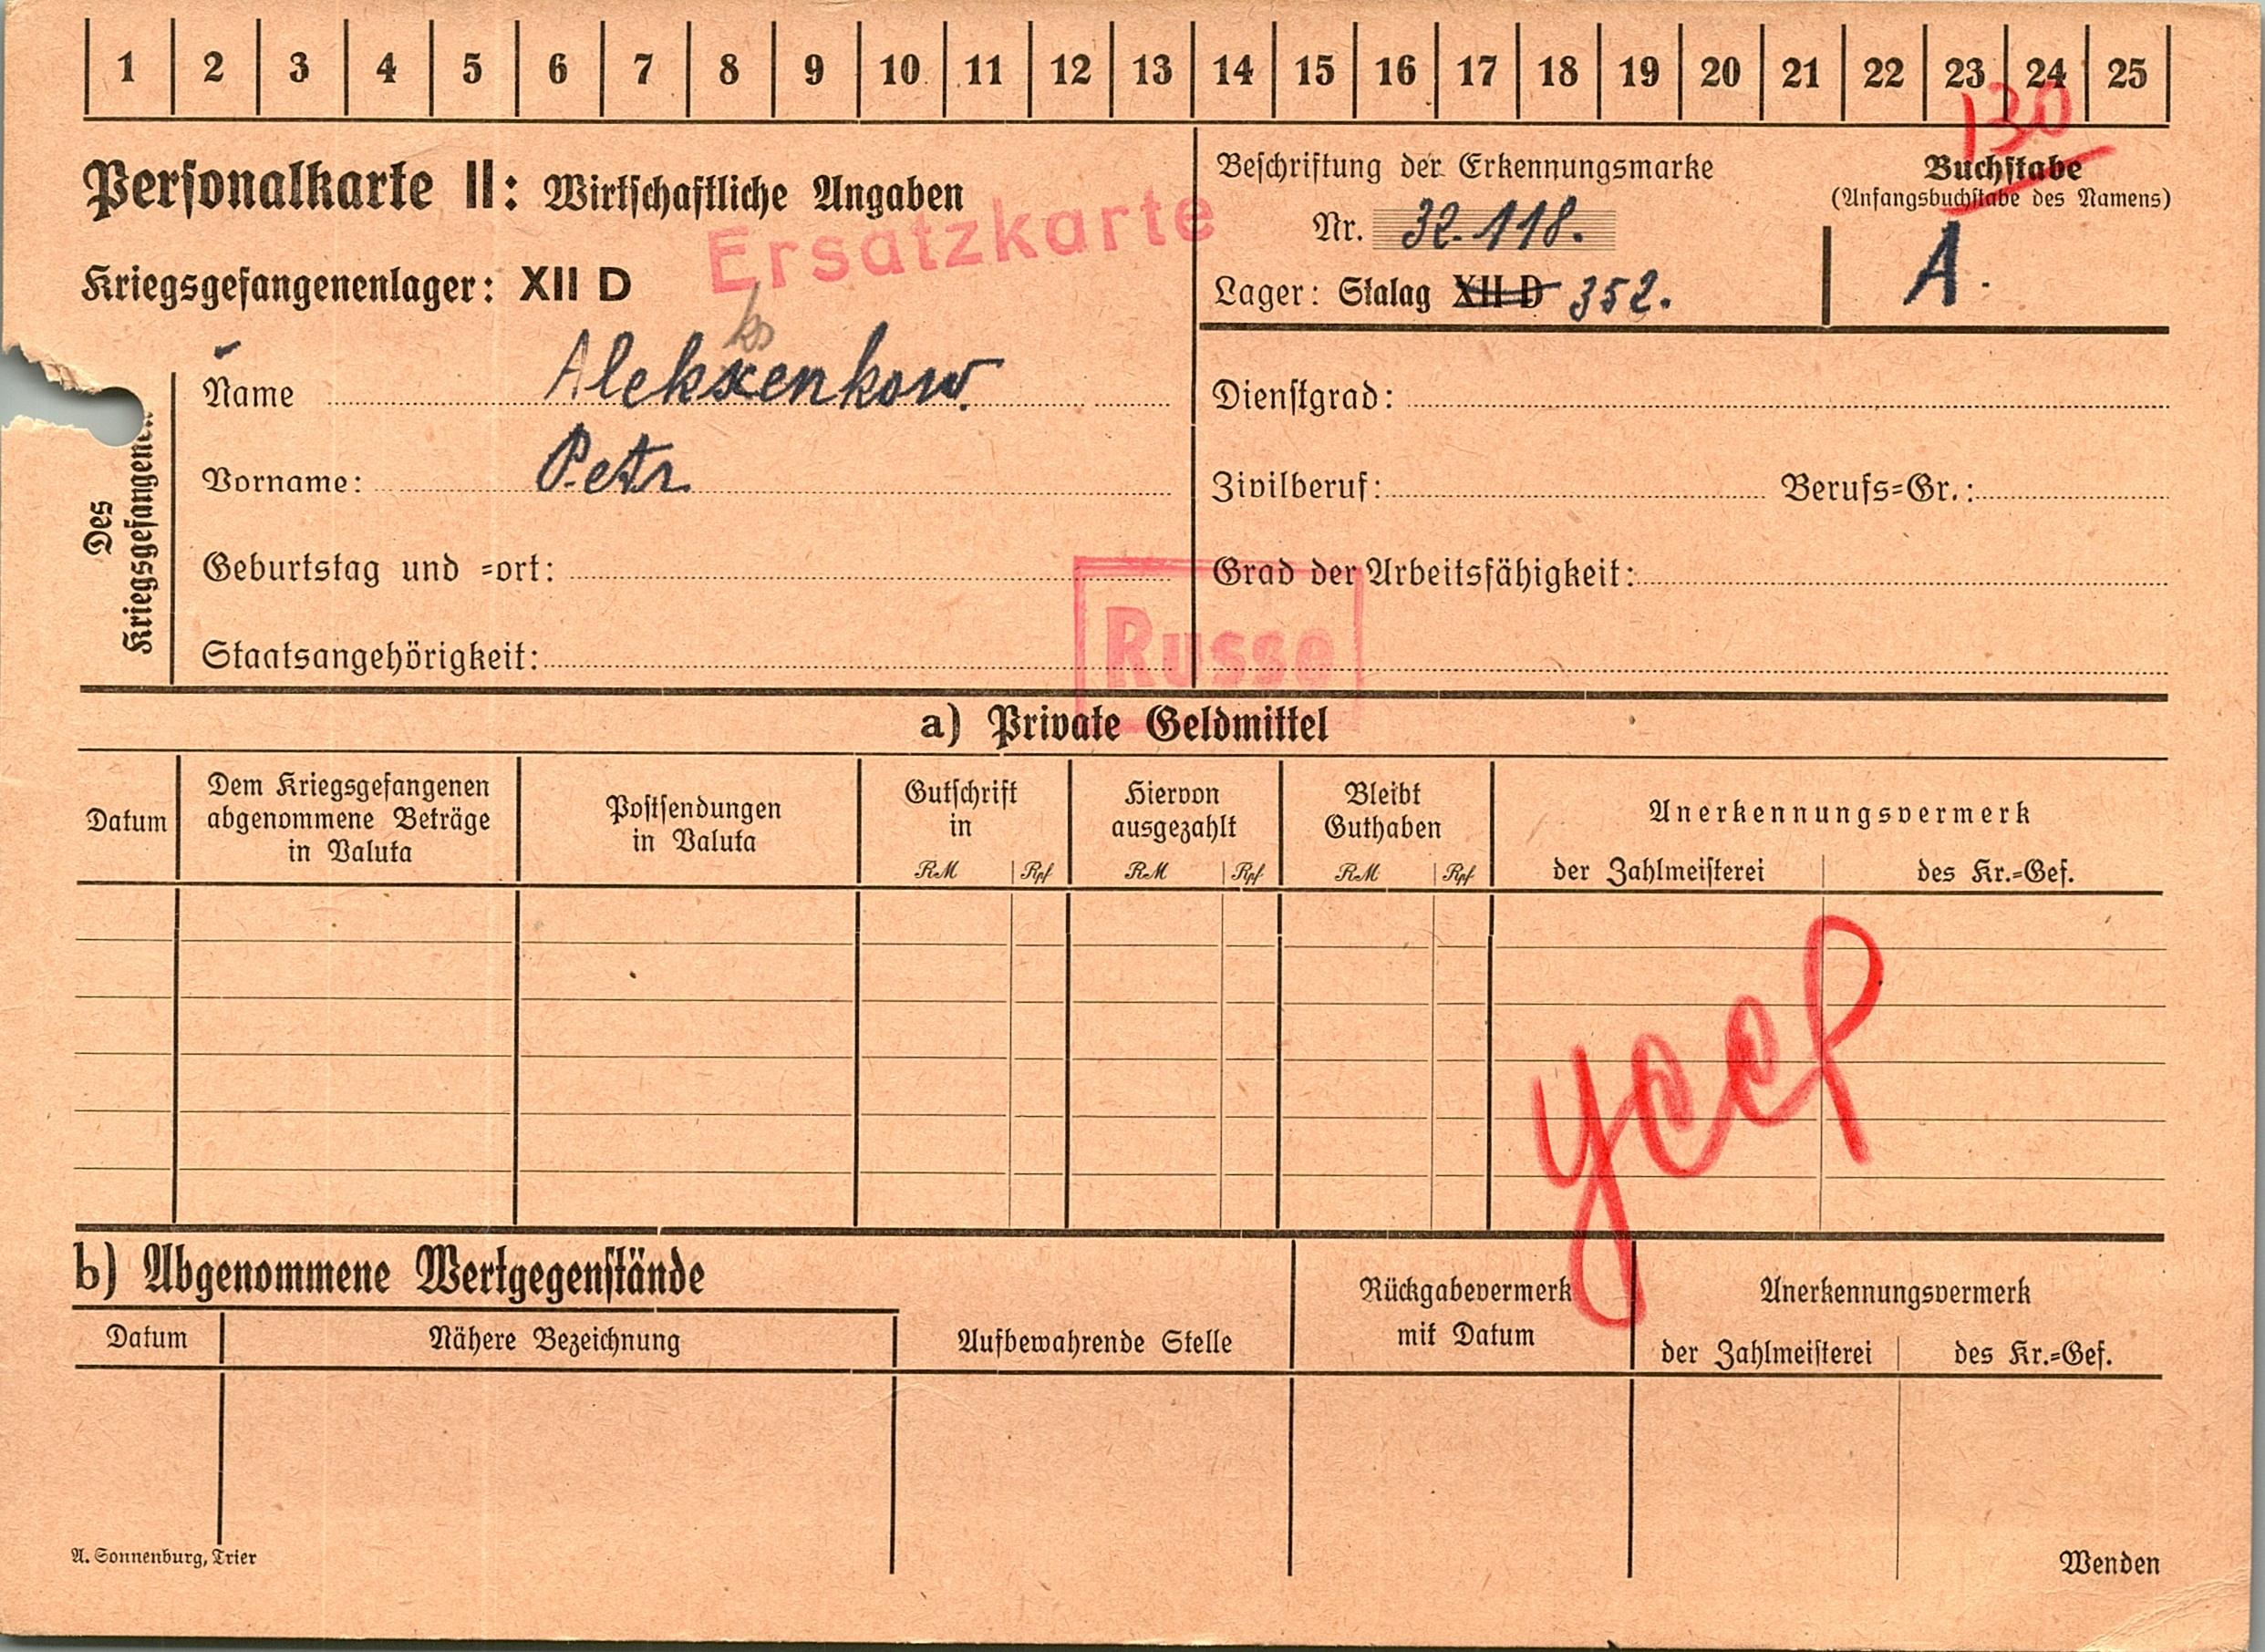 1 2 3 4 5 6 7 8 9 10 11 12 13 14 15 16 17 18 19 20 21 22 23 24 25
130
Personalkarte II: Wirtschaftliche Angaben
Ersatzkarte
Kriegsgefangenenlager: XII D
Beschriftung der Erkennungsmarke
Nr. 32.118.
Lager: Stalag XII D 352.
Buchstabe
(Anfangsbuchstabe des Namens)
A.
Des
Kriegsgefangenen
ks
Name Alekxenkow.
Vorname: Petr.
Geburtstag und =ort:
Staatsangehörigkeit:
Dienstgrad:
Zivilberuf: Berufs=Gr.:
Grad der Arbeitsfähigkeit:
Russe
a) Private Geldmittel
Datum
Dem Kriegsgefangenen
abgenommene Beträge
in Valuta
Postsendungen
in Valuta
Gutschrift
in
RM Rpf
Hiervon
ausgezahlt
RM Rpf
Bleibt
Guthaben
RM Rpf
Anerkennungsvermerk
der Zahlmeisterei des Kr.=Gef.
b) Abgenommene Wertgegenstände
Datum Nähere Bezeichnung
Aufbewahrende Stelle
Rückgabevermerk
mit Datum
Anerkennungsvermerk
der Zahlmeisterei des Kr.=Gef.
A. Sonnenburg, Trier
Wenden